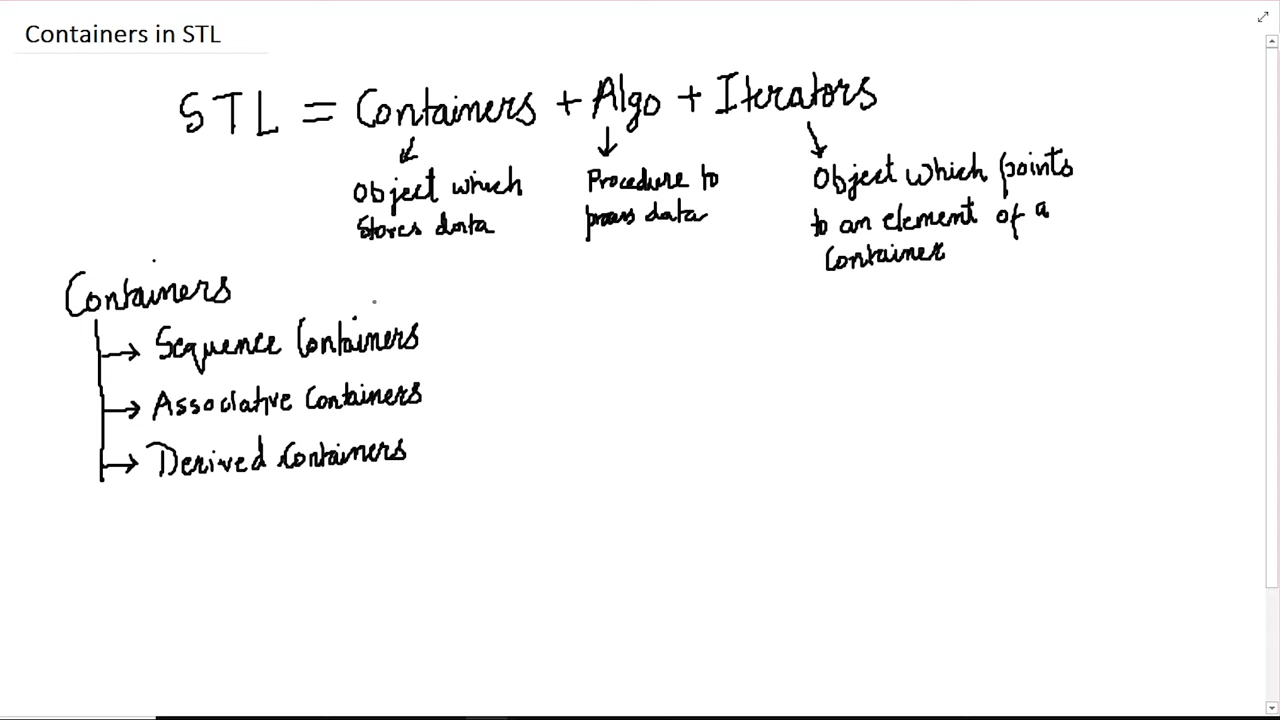 Containers in STL
STL = Containers + Algo + Iterators
Object which
stores data
Procedure to
process data
Object which points
to an element of a
Container
Containers
Sequence Containers
Associative Containers
Derived Containers